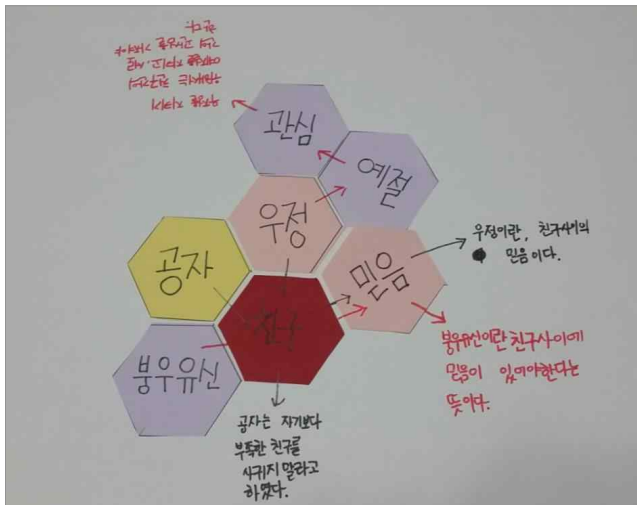 관심
예절
우정
공자
믿음
친구
붕우유신
우정이란, 친구사이의
믿음이다.
붕우유신이란 친구사이에
믿음이 있어야한다는
뜻이다.
공자는 자기보다
부족한 친구를
사귀지 말라고
하였다.
우정을 지키기